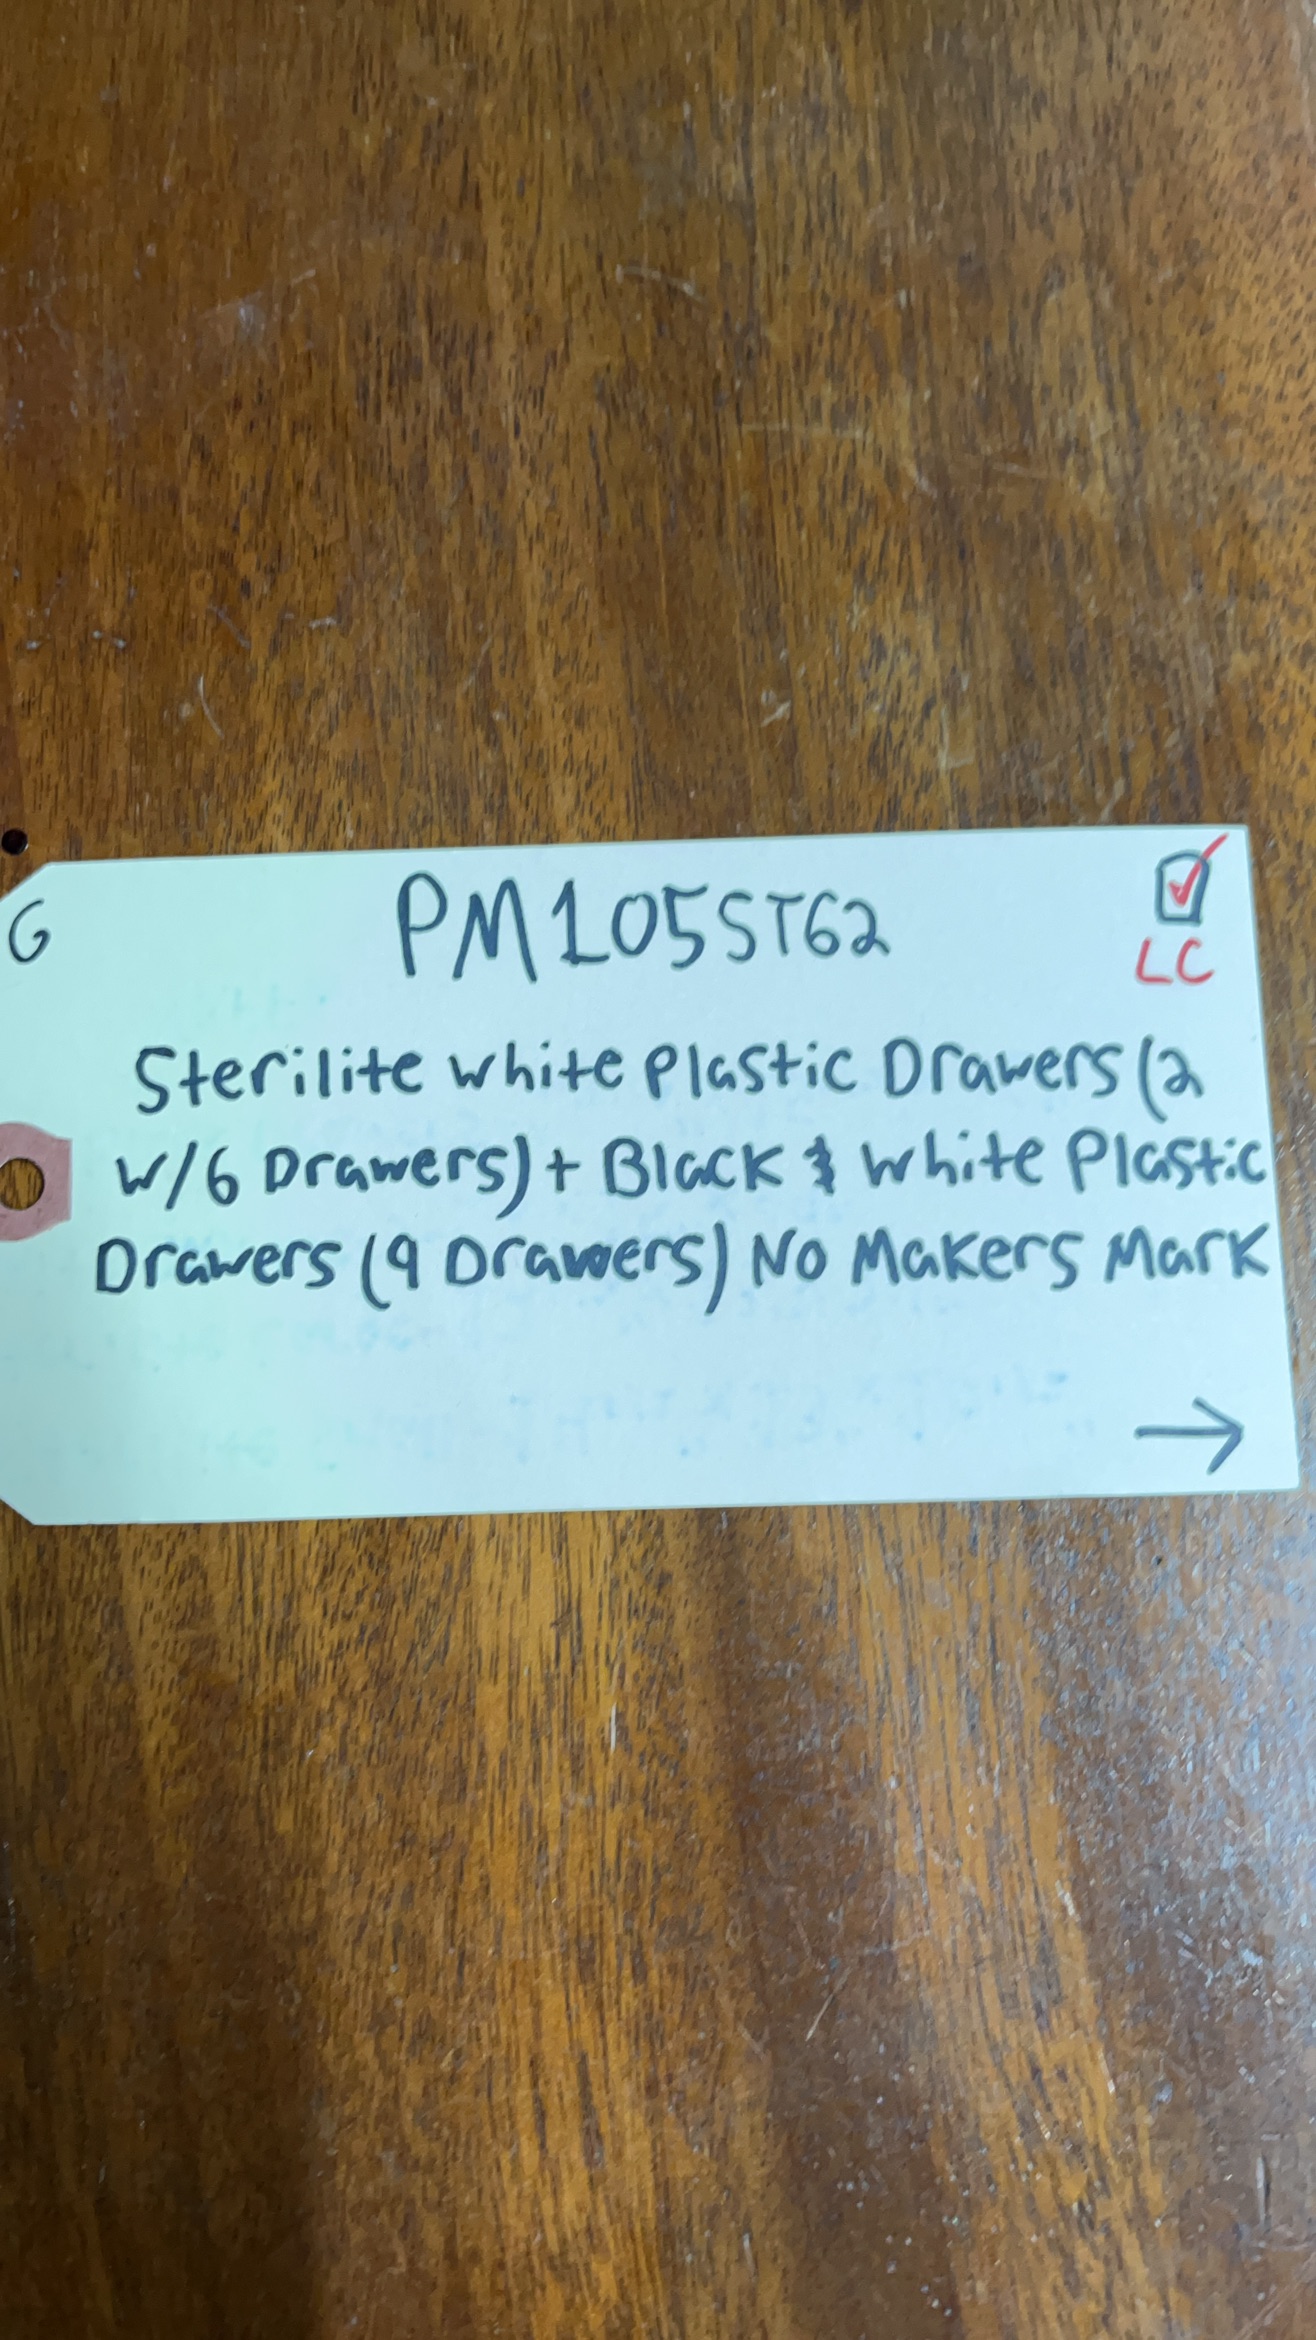 G PM105ST62 ☑
LC
Sterilite white Plastic Drawers (2
w/6 Drawers) + Black & white Plastic
Drawers (9 Drawers) No Makers Mark
→